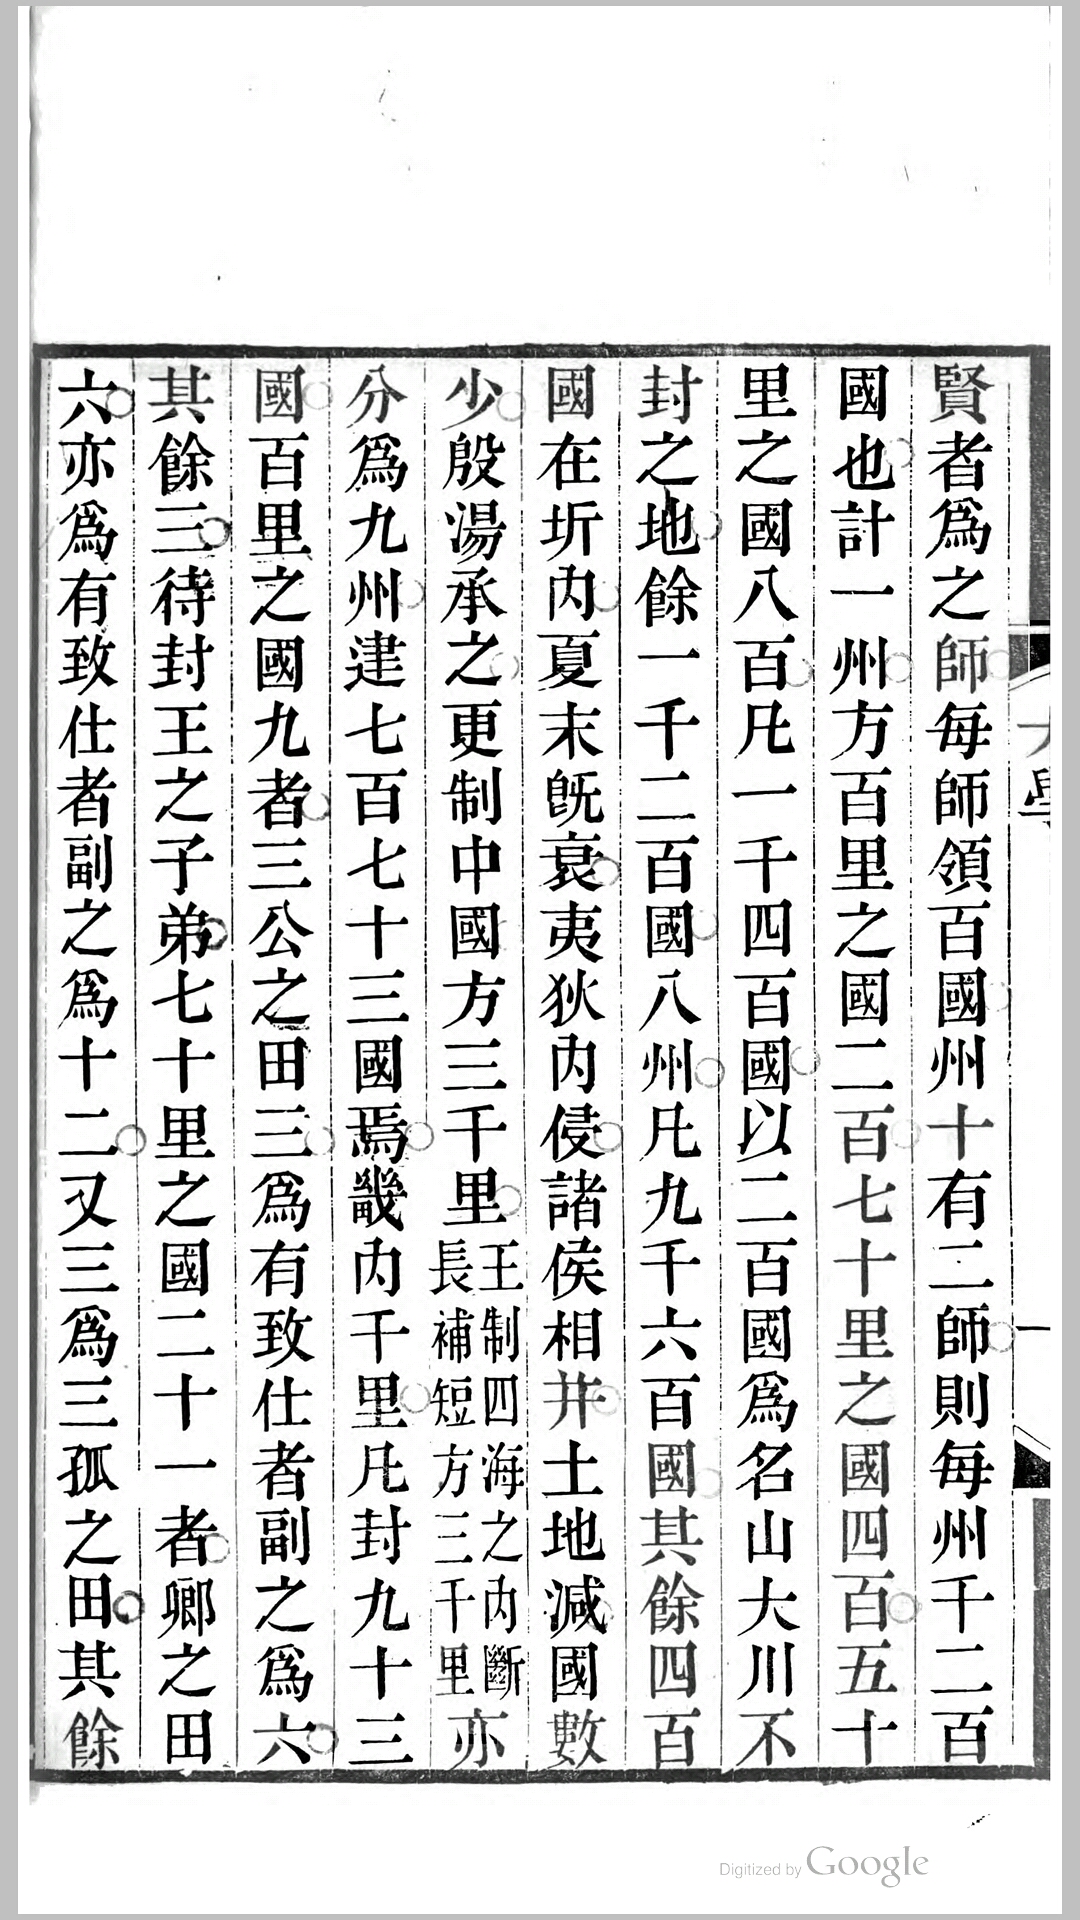 賢者爲之師每師領百國州十有二師則每州千二百
國也計一州方百里之國二百七十里之國四百五十
里之國八百凡一千四百國以二百國爲名山大川不
封之地餘一千二百國八州凡九千六百國其餘四百
國在圻內夏末旣衰夷狄內侵諸侯相幷土地減國數
少殷湯承之更制中國方三千里王制四海之內斷長補短方三千里亦
分爲九州建七百七十三國焉畿內千里凡封九十三
國百里之國九者三公之田三爲有致仕者副之爲六
其餘三待封王之子弟七十里之國二十一者卿之田
六亦爲有致仕者副之爲十二又三爲三孤之田其餘
一
Digitized by Google